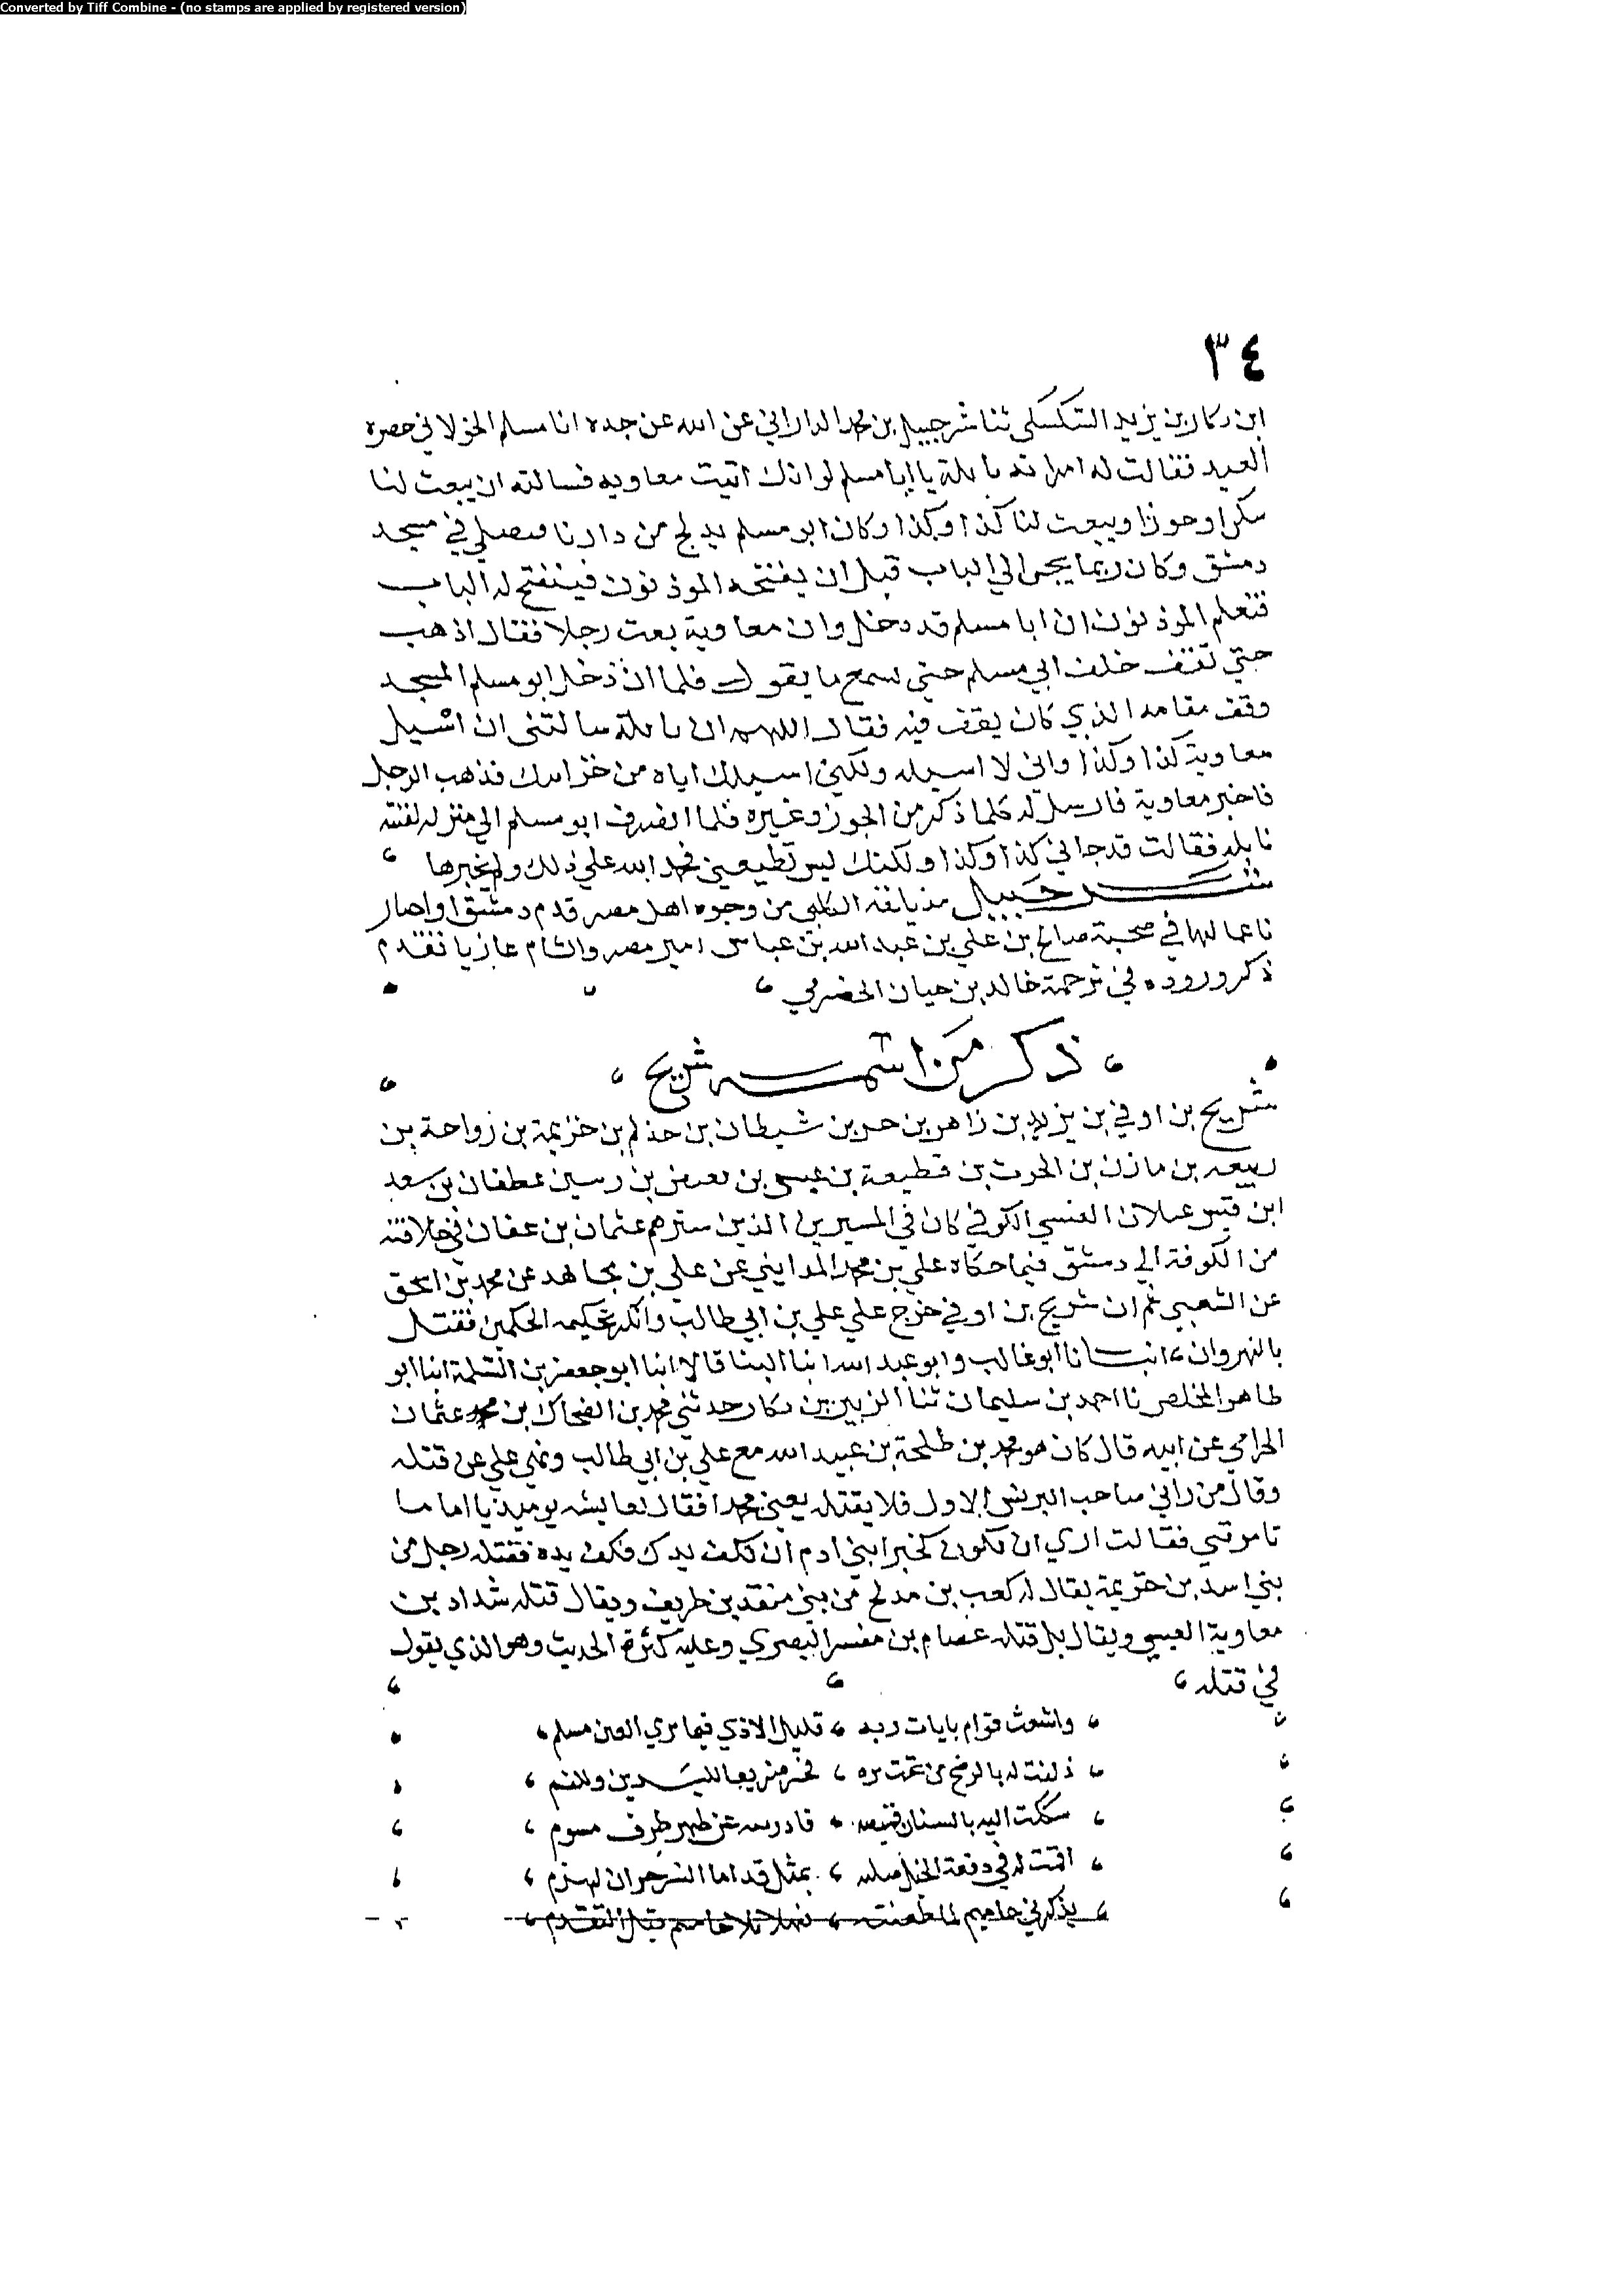 Converted by Tiff Combine - (no stamps are applied by registered version)
٣٤
ابن بكار بن يزيد السكسكي ثنا شرحبيل بن محمد الداراني عن الله عن جده انا مسلم الخولاني حصره
العيد فقالت له امراته نا ىلة يا ابا مسلم لو انك اتيت معاويه فسالته ان يبعث لنا
سكرا وجوزا ويبعث لنا كذا وكذا وكان ابو مسلم يدلج من دارنا فيصلي في مسجد
دمشق وكان ربما يجى الي الباب قبل ان يفتحه الموذنون فينفتح له الباب
فتعلم الموذنون ان ابا مسلم قد دخل وان معاوية بعث رجلا فقال اذهب
حتي تقف خلف ابي مسلم حتى تسمع ما يقول فلما ان دخل ابو مسلم المسجد
وقف مقامه الذي كان يقف فيه فقال اللهم ان نا ىلة سالتنى ان اسيل
معاوية كذا وكذا واني لا اسيله ولكني اسيلك اياه من خزاىنك فذهب الرجل
فاخبر معاوية فارسل له كلما ذكر من الجوز وغيره فلما انصرف ابو مسلم الي منزله لقته
نايله فقالت قد جاني كذا وكذا ولكنك ليس تطيعني فحمد الله علي ذلك ولم يخبرها
شرحبيل مذيلفة الكلبي من وجوه اهل مصر قدم دمشق او اجتاز
باعمالها في صحبة صالح بن علي بن عبد الله بن عباس امير مصر والشام غازيا تقدم
ذكر وروده في ترجمة خالد بن حيان الحضرمي
ذكر من اسمه شريح
شريح بن اوفي بن يزيد بن زاهر بن حر بن شيطان بن حذلم بن خزيمة بن رواحة بن
ربيعه بن مازن بن الحرث بن قطيعة بن عبس بن بعيض بن ريس بن غطفان بن سعد
ابن قيس عيلان العنسي الكوفي كان في المسيرين الذين سيرهم عثمان بن عفان في خلافته
من الكوفة الي دمشق فيما حكاه علي بن محمد المدايني عن علي بن مجاهد عن محمد بن اسحق
عن الشعبي ثم ان شريح بن اوفي خرج علي علي بن ابي طالب وانكر تحكيمه الحكمين فقتل
بالنهروان انبانا ابو غالب وابو عبد الله ابنا البنا قالا ابنا ابو جعفر بن المسلمة ابنا ابو
طاهر المخلص نا احمد بن سليمان ثنا الزبير بن بكار حدثني محمد بن الضحاك بن محمد عثمان
الحزامي عن ابيه قال كان هو محمد بن طلحة بن عبيد الله مع علي بن ابي طالب ونهي علي عن قتله
وقال من راي صاحب البرنس الاول فلا يقتله يعني محمدا فقال لعايشه يوميذ يا اما ما
تامرني فقالت اري ان تكون كخير ابني ادم ان تكف يدك فكف يده فقتله رجل من
بني اسد بن خزيمة يقال له كعب بن مدلج من بني منقذ بن طريف ويقال قتله شداد بن
معاوية العبسي ويقال بل قتله عصام بن مقشعر البصري وعليه كثرة الحديث وهو الذي يقول
في قتله
واشعث قوام بايات ربه قليل الاذي فيما يري العين مسلم
ذلفت له بالرمح من تحت بزه فخر صريعا لليدين وللفم
شككت اليه بالسنان قميصه فاذريته عن ظهر طرف مسوم
اقمت له في دفعة الخيل صلبه بمثل قداما النسر حران لهذم
يذكرني حاميم لما طعنته فهلا تلا حاميم قبل التقدم